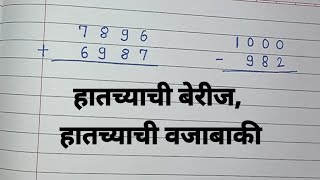 7896
+ 6987
1000
- 982
हातच्याची बेरीज,
हातच्याची वजाबाकी